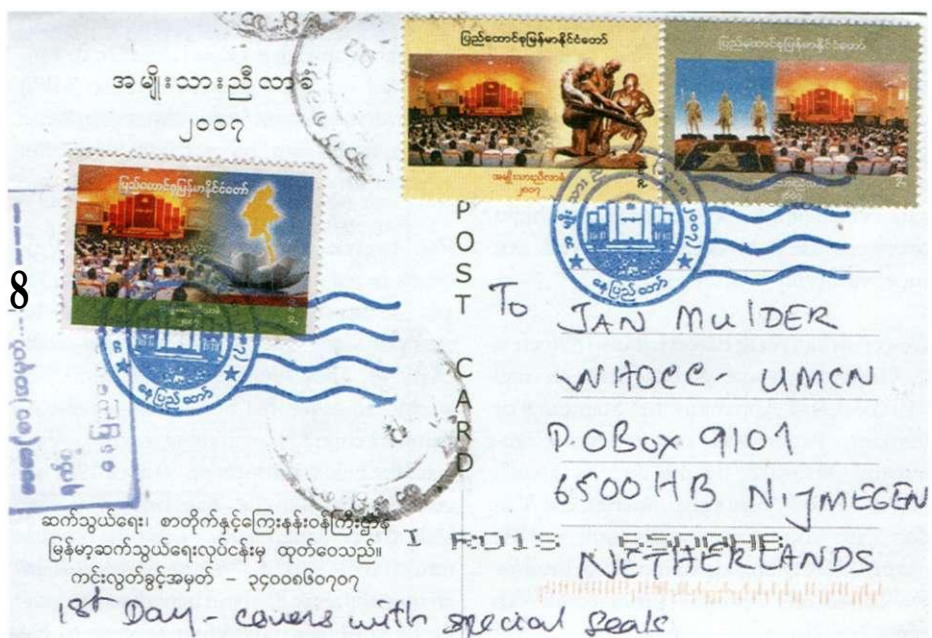 အမျိုးသားညီလာခံ
၂၀၀၇
ပြည်ထောင်စုမြန်မာနိုင်ငံတော်
ပြည်ထောင်စုမြန်မာနိုင်ငံတော်
အမျိုးသားညီလာခံ
၂၀၀၇
ပြည်ထောင်စုမြန်မာနိုင်ငံတော်
နေပြည်တော်
နေပြည်တော်
8
POST CARD
To JAN MULDER
NHOCC - UMCN
P.O Box 9101
6500 HB NIJMEGEN
NETHERLANDS
ဆက်သွယ်ရေး၊ စာတိုက်နှင့်ကြေးနန်းဝန်ကြီးဌာန
မြန်မာ့ဆက်သွယ်ရေးလုပ်ငန်းမှ ထုတ်ဝေသည်။
ကင်းလွတ်ခွင့်အမှတ် – ၁၄၀၀၈၆၆၀၇၀၇
1st Day - covers with special seals